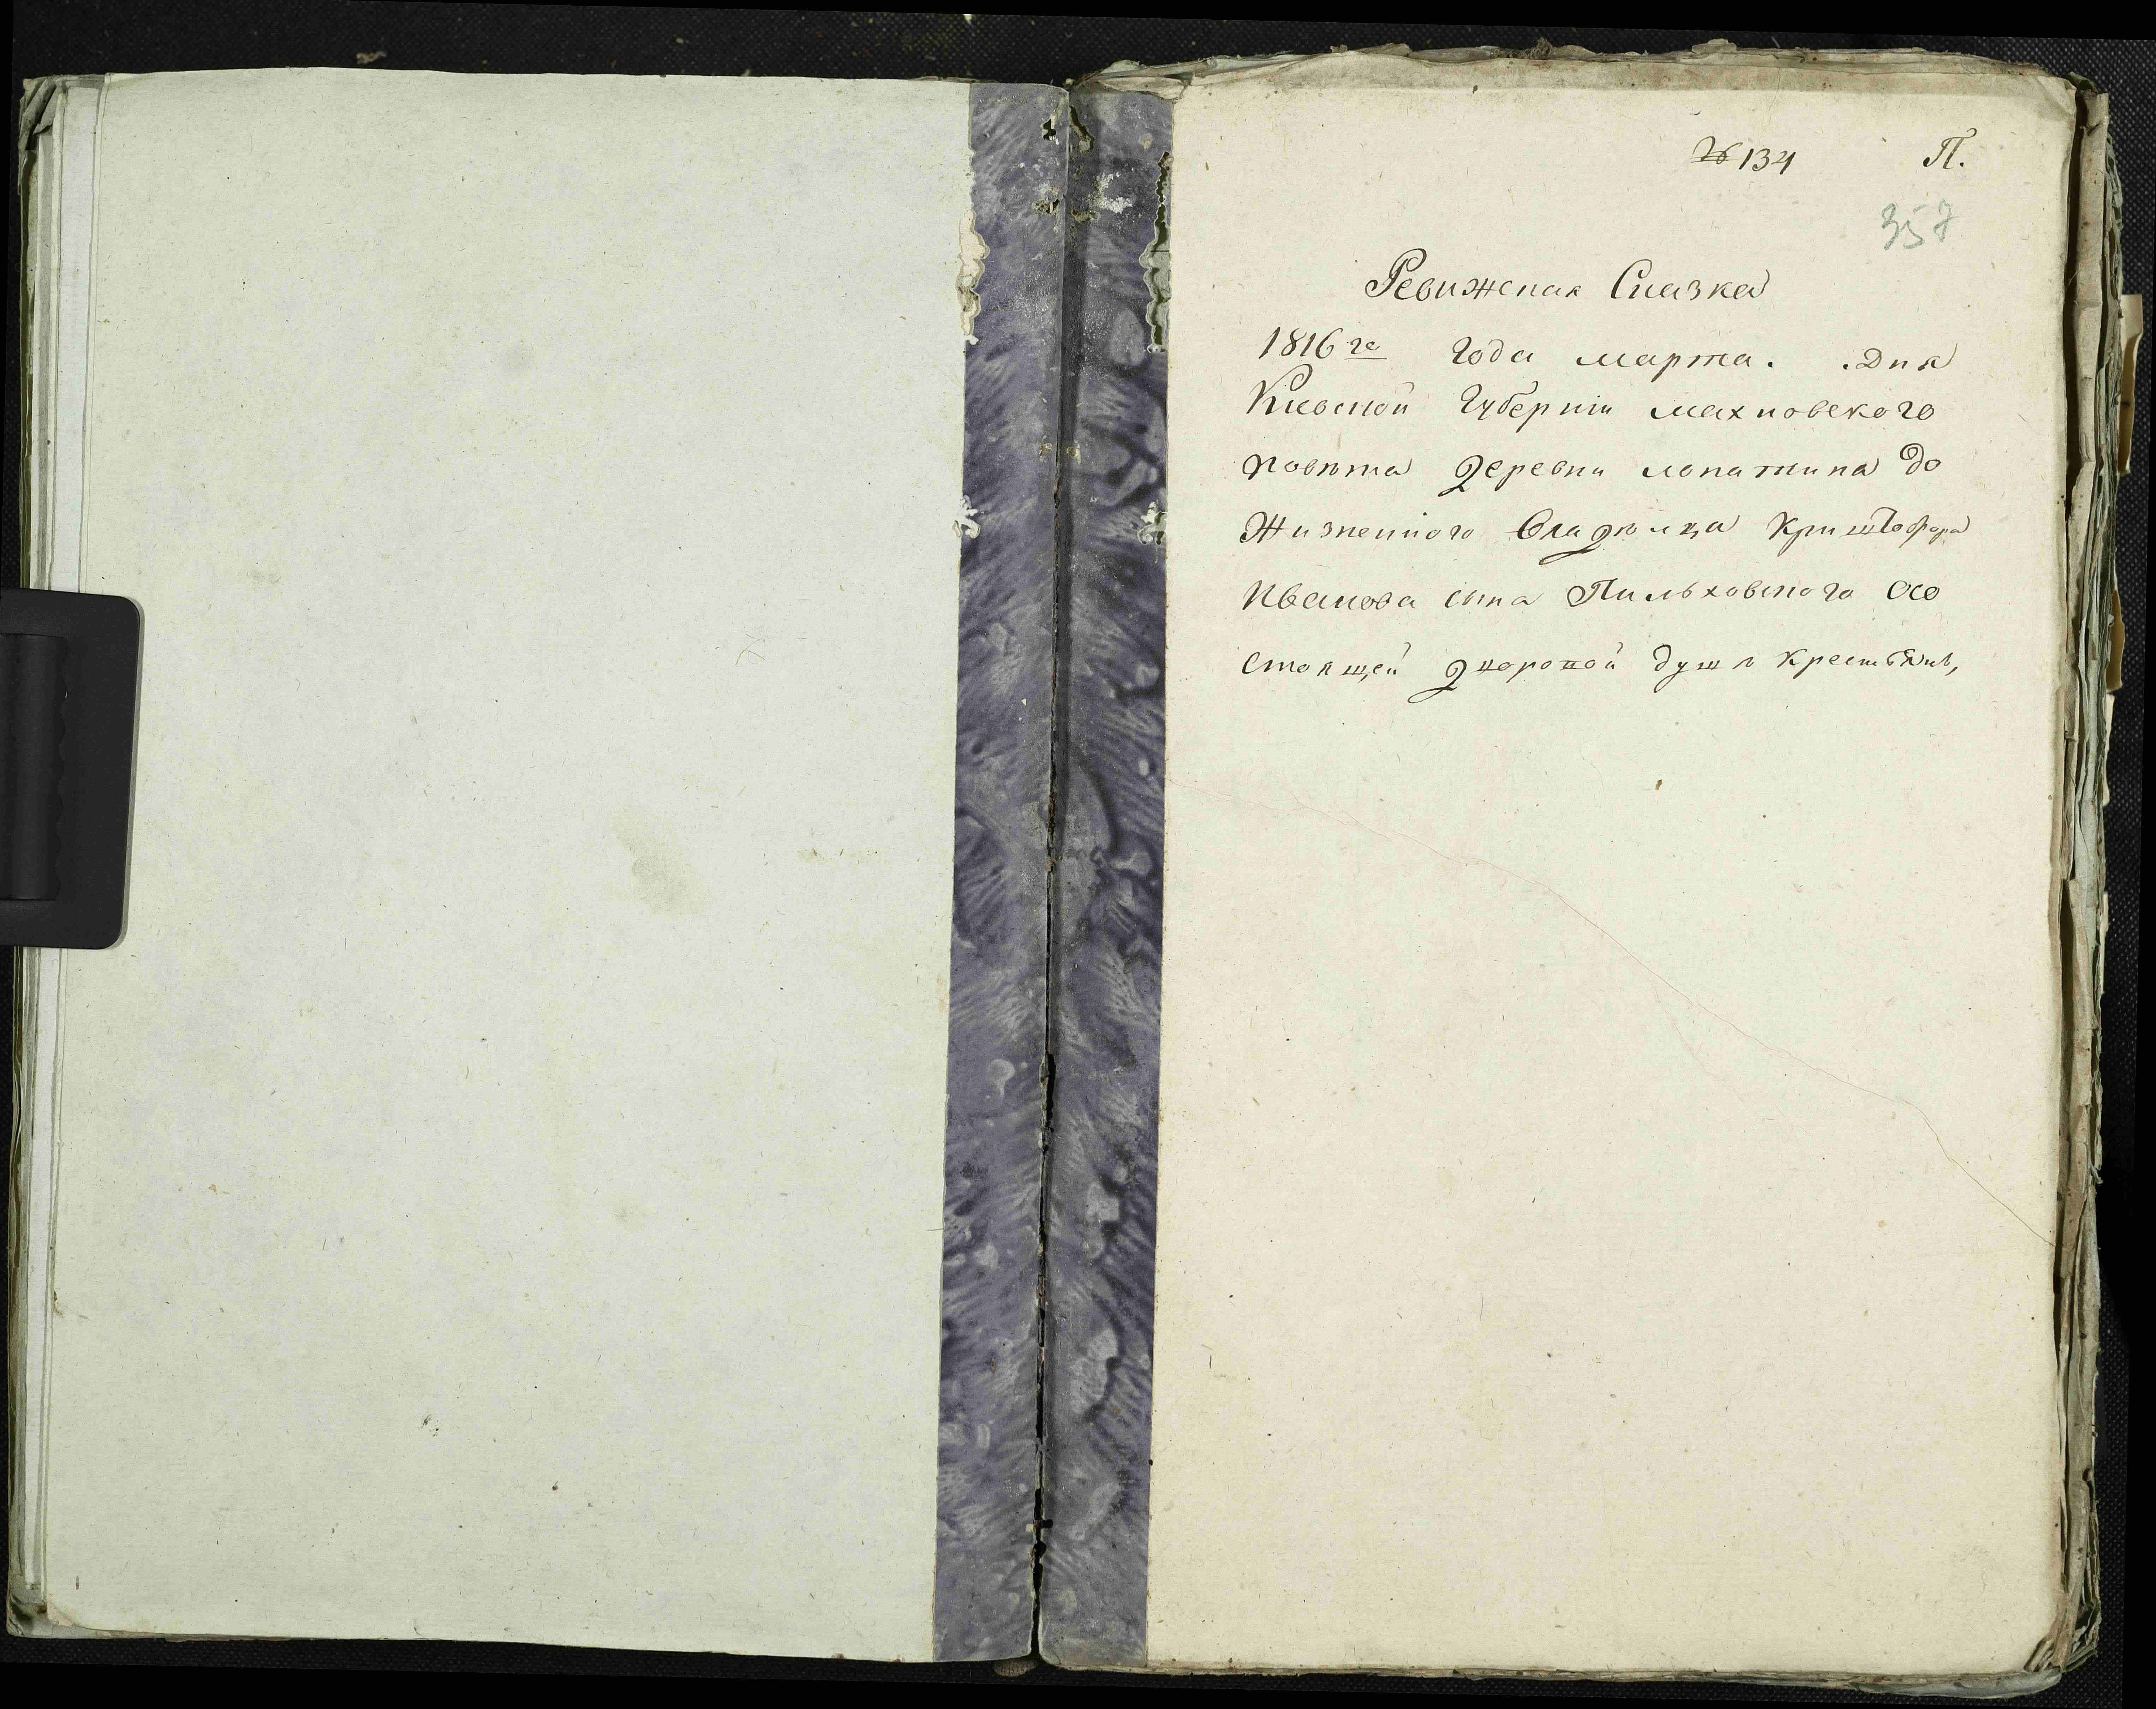 № 134 П.
357
Ревижская Сказка
1816го Года марта. . дня
Киевской Губернии махновского
повѣта Деревни лопатина до
жизненного владѣльца Криштофора
Иванова сына Пильховского о со
стоящей дворовой душѣ крестьянъ,